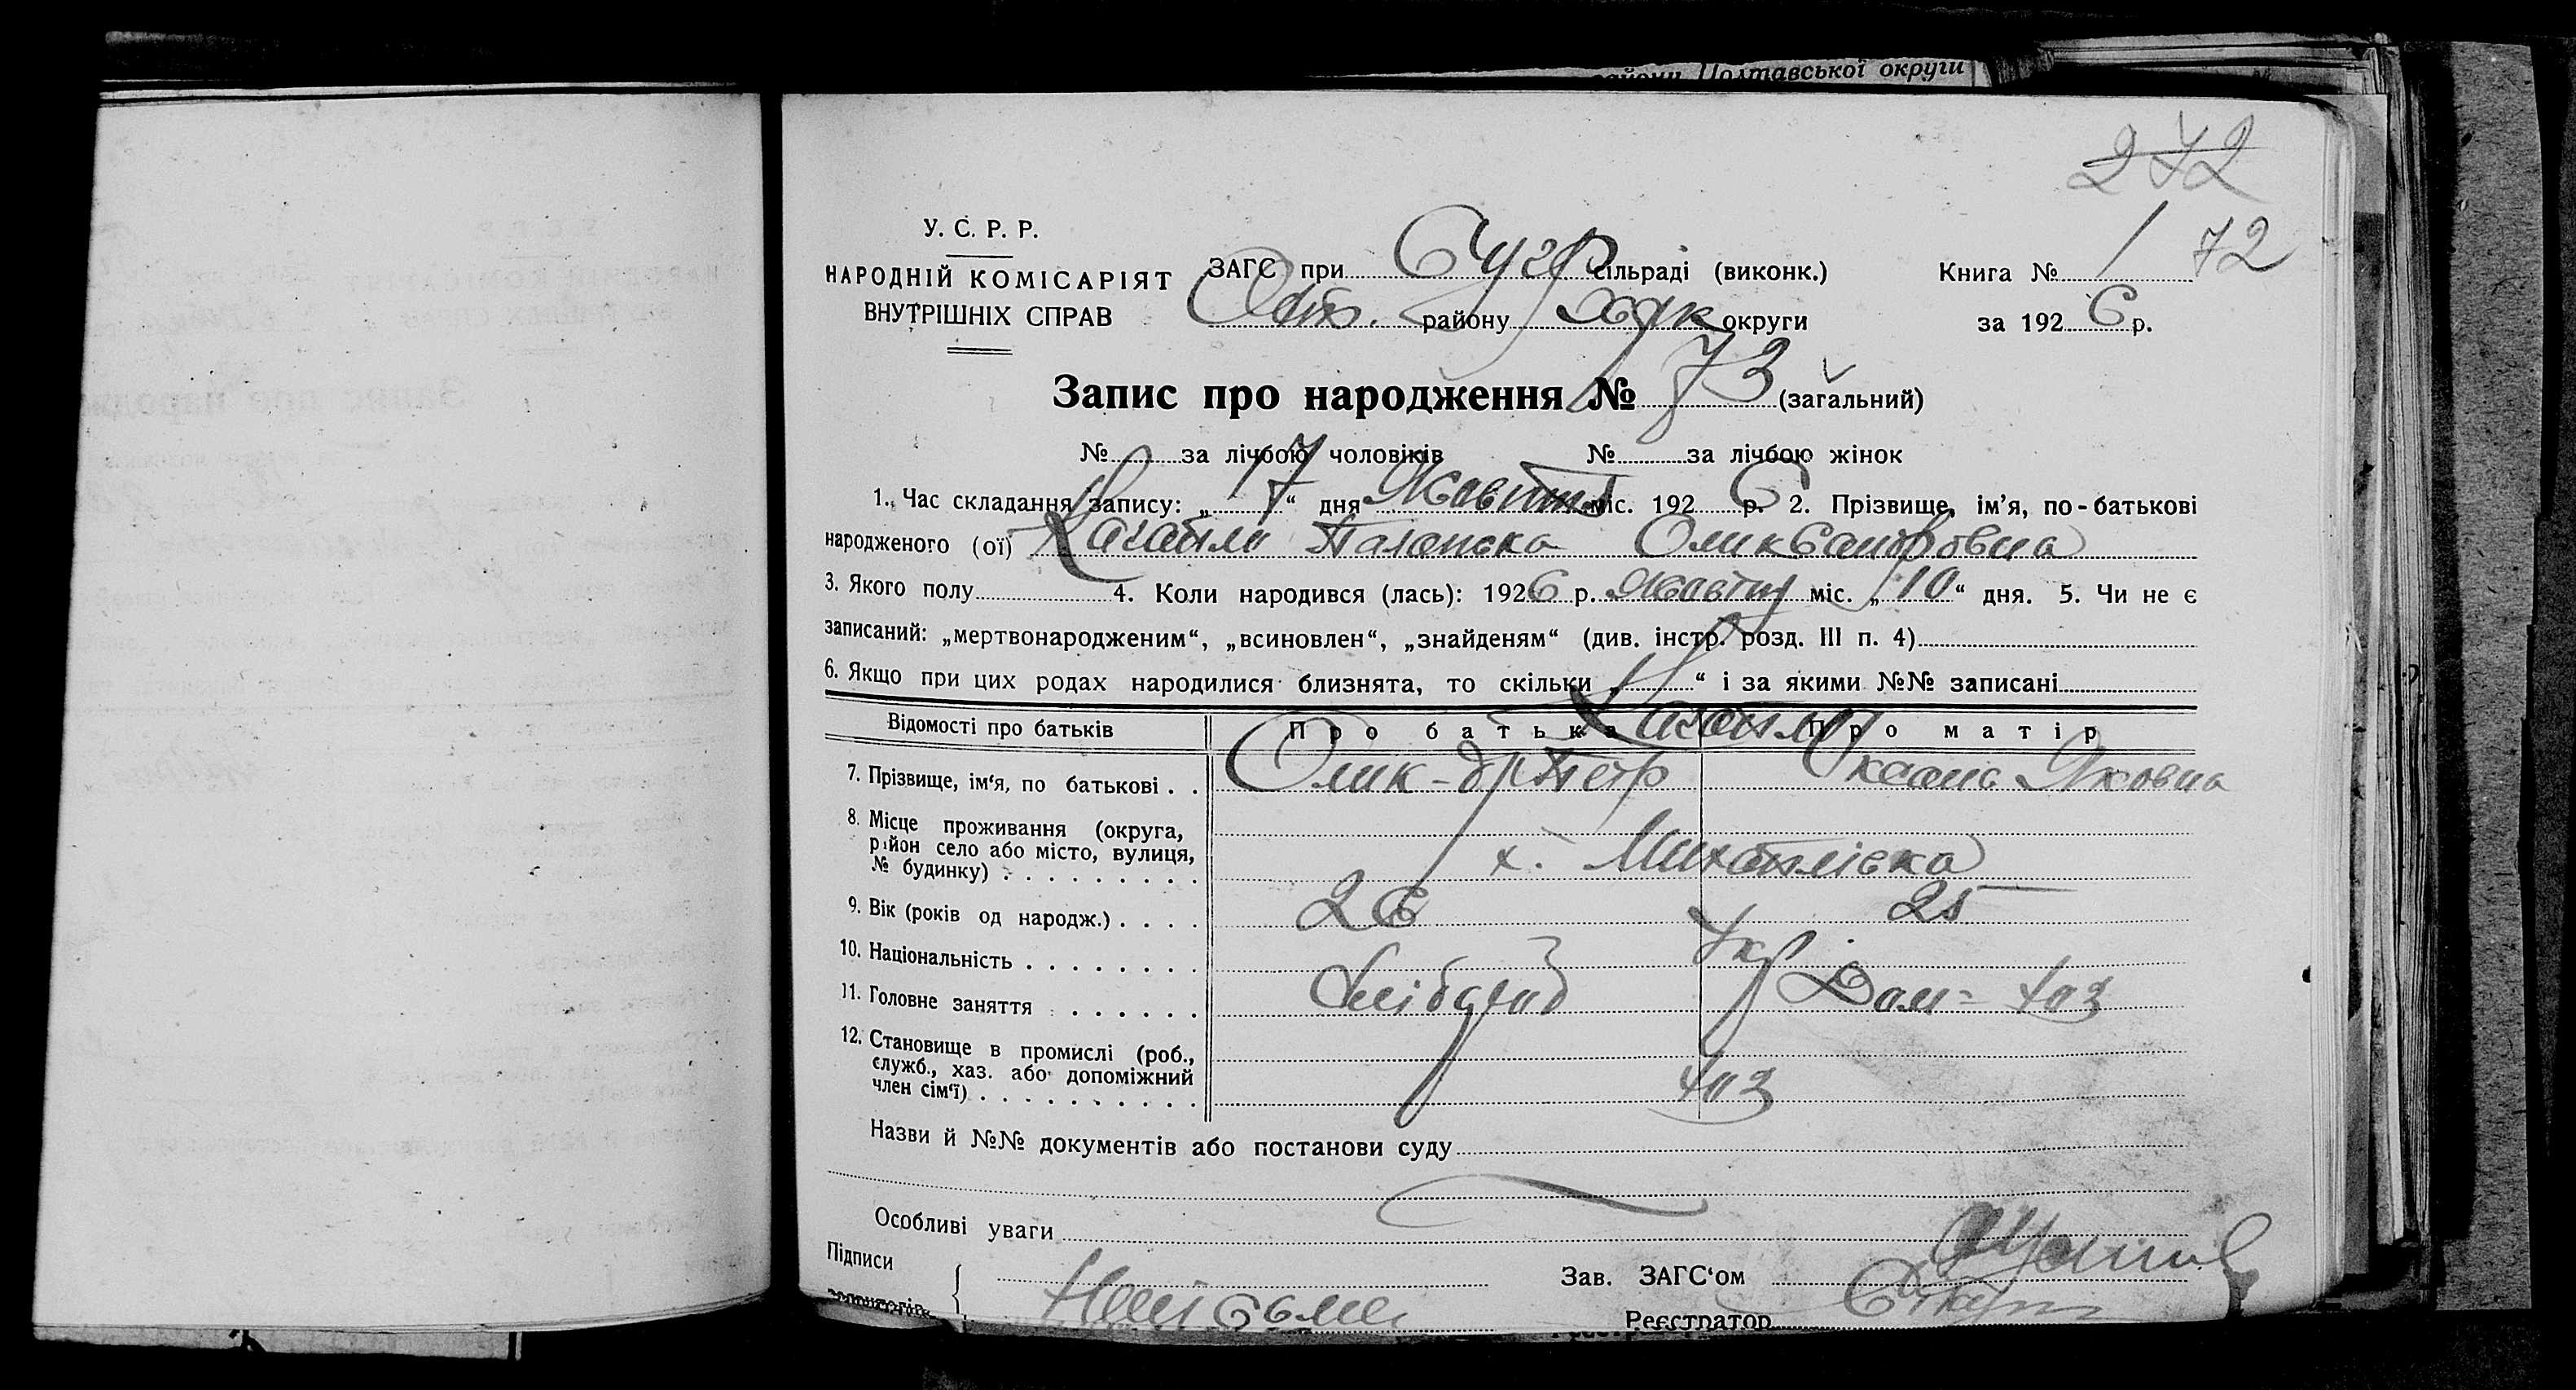 райони Полтавської округи
272
72
У. С. Р. Р.
НАРОДНІЙ КОМІСАРІЯТ
ВНУТРІШНІХ СПРАВ
ЗАГС при сільраді (виконк.)
району округи
Книга № 1
за 1926 р.
Запис про народження № 73 (загальний)
№ за лічбою чоловіків № за лічбою жінок
1. Час складання запису: „17“ дня Жовтня міс. 1926 р. 2. Прізвище, ім'я, по-батькові
народженого (ої) Палажка Олександровна
3. Якого полу 4. Коли народився (лась): 1926 р. Жовтня міс. „10“ дня. 5. Чи не є
записаний: „мертвонародженим“, „всиновлен“, „знайденям“ (див. інстр. розд. III п. 4)
6. Якщо при цих родах народилися близнята, то скільки „ “ і за якими №№ записані
Відомості про батьків Про батька Про матір
7. Прізвище, ім'я, по батькові Олек-др Петр Оксана Яковна
8. Місце проживання (округа,
район село або місто, вулиця,
№ будинку) х. Михайлівка
9. Вік (років од народж.) 26 25
10. Національність Укр
11. Головне заняття Хлібороб Дом-хаз
12. Становище в промислі (роб.,
служб., хаз. або допоміжний
член сім'ї) хаз
Назви й №№ документів або постанови суду
Особливі уваги
Підписи
Неписьмен
Зав. ЗАГС'ом
Реєстратор